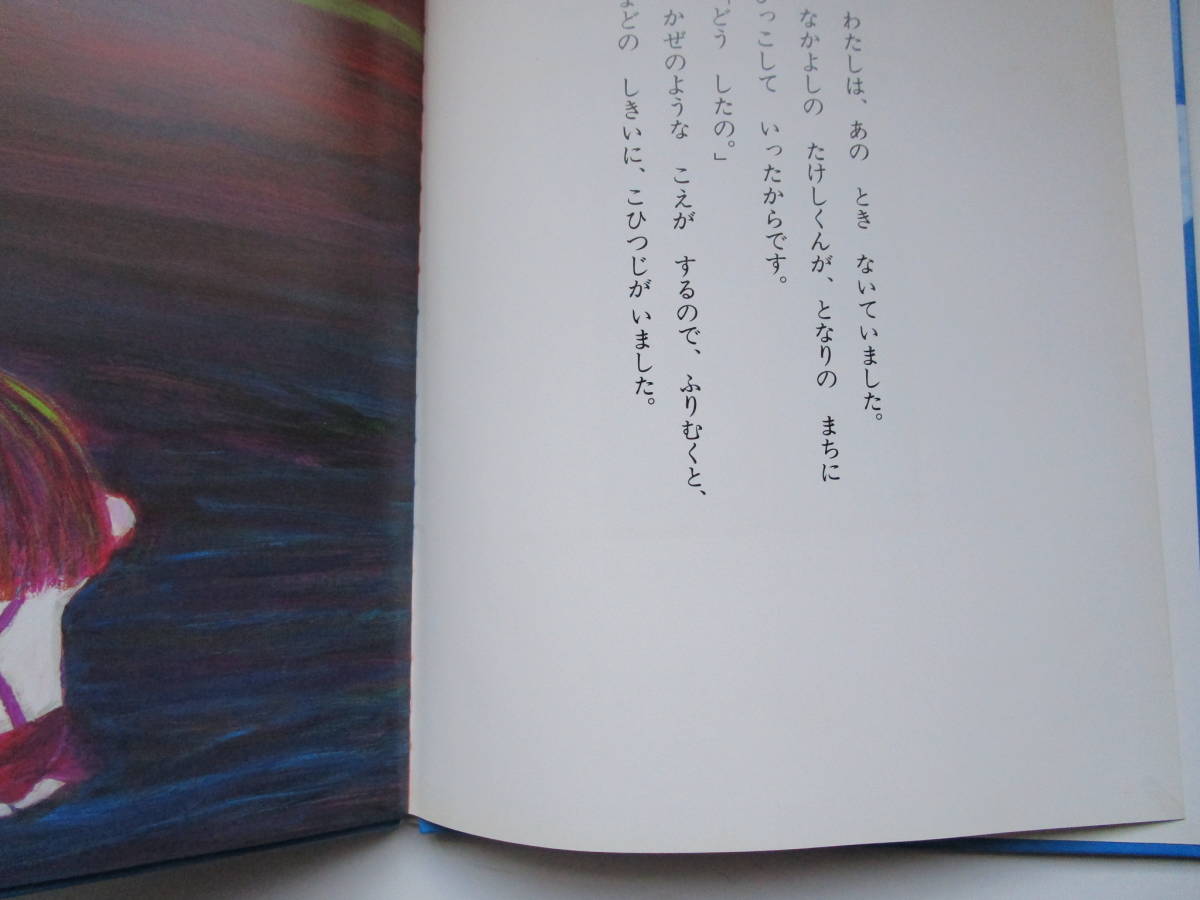 わたしは、あの とき ないていました。
なかよしの たけしくんが、となりの まちに
っこして いったからです。
どう したの。」
かぜのような こえが するので、ふりむくと、
どの しきいに、こひつじが いました。